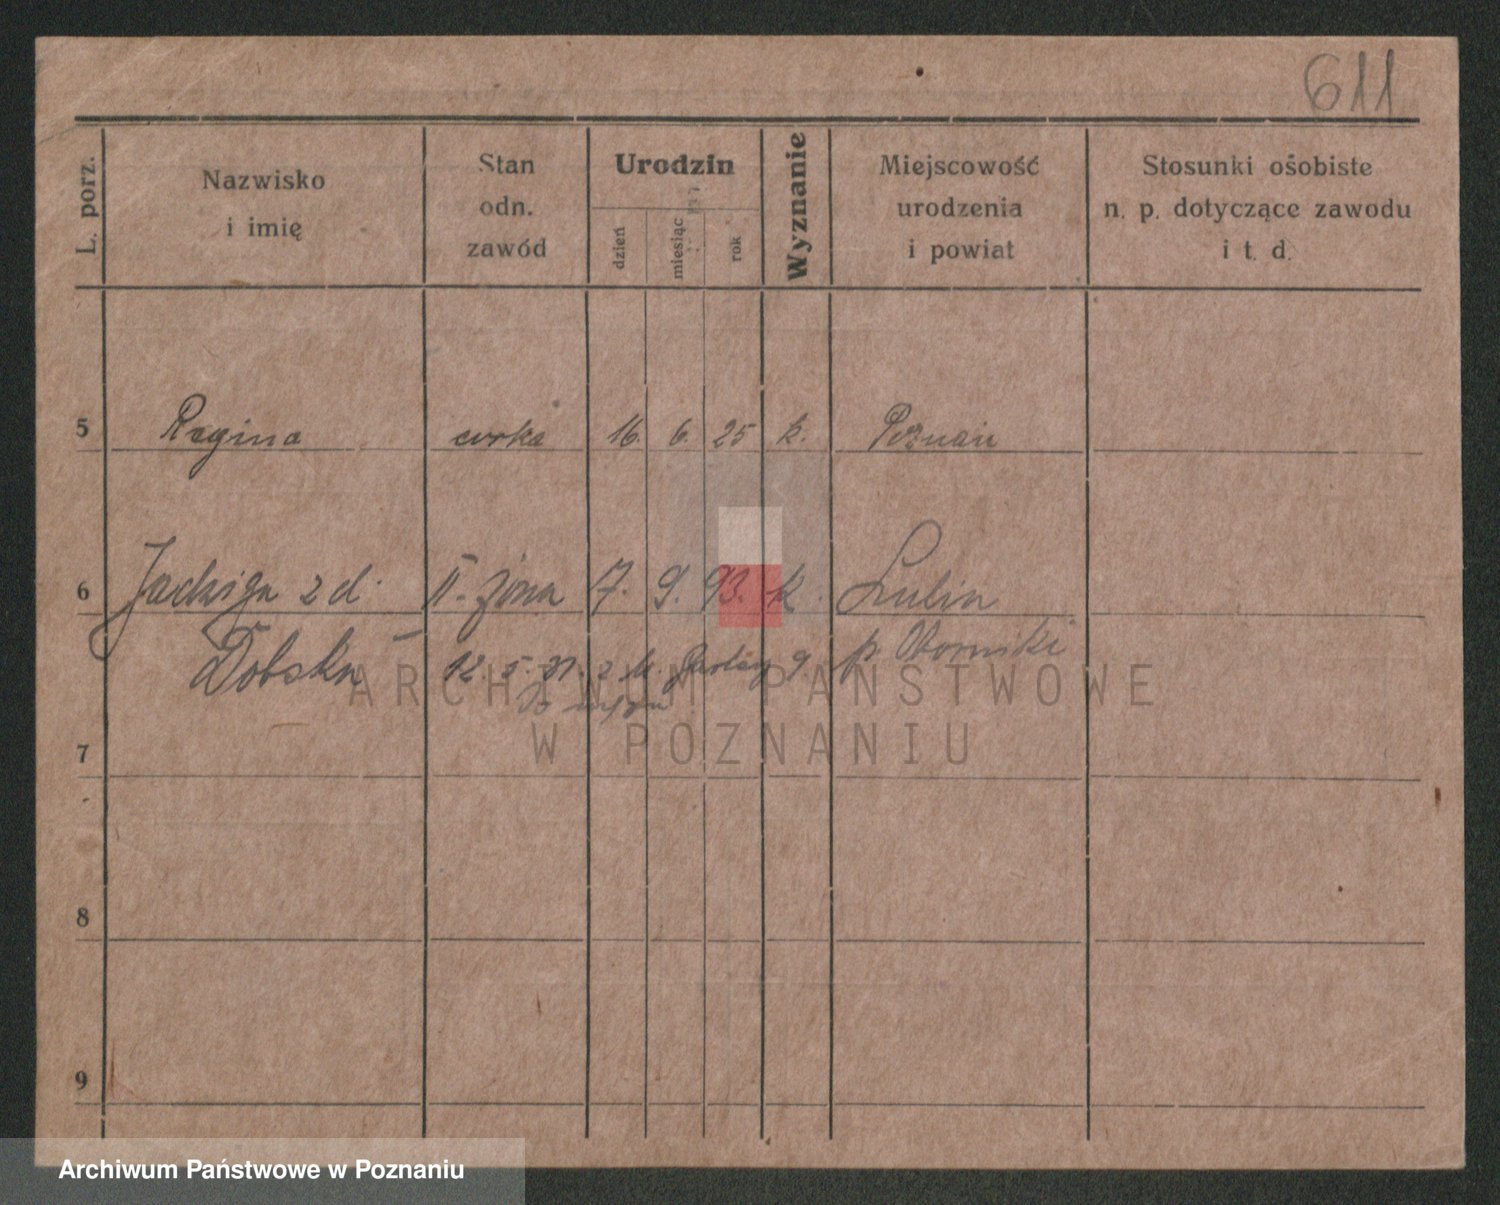 611
L. porz.
Nazwisko
i imię
Stan
odn.
zawód
Urodzin
dzień
miesiąc
rok
Wyznanie
Miejscowość
urodzenia
i powiat
Stosunki osobiste
n. p. dotyczące zawodu
i t. d.
5 Regina corka 16. 6. 25 k. Poznań
6 Jadwiga z d. II. żona 7. 9. 93. k.
Dobska 12. 5. 31. z M. 9. p.
do męża
ARCHIWUM PAŃSTWOWE
W POZNANIU
7
8
9
Archiwum Państwowe w Poznaniu